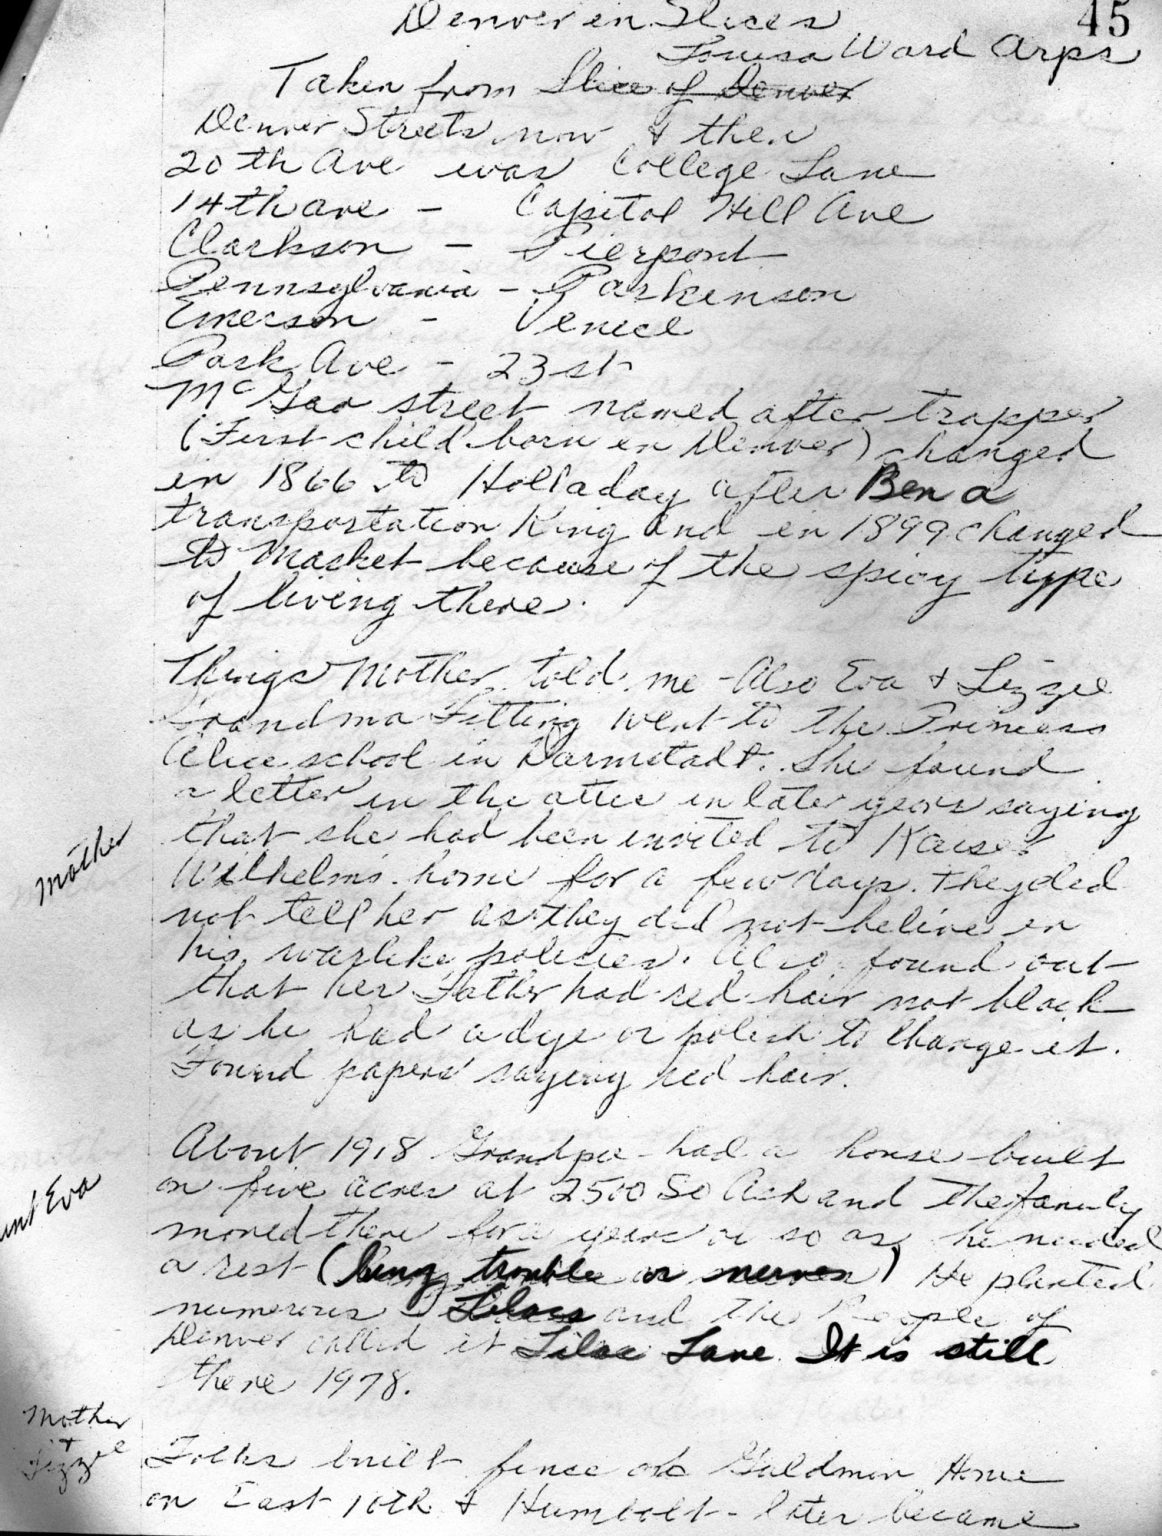 45
Denver in Slices
Louisa Ward Arps
Taken from Slice of Denver
Denver Streets now & then
20th Ave was College Lane
14th ave - Capitol Hill Ave
Clarkson - Pierpont
Pennsylvania - Parkinson
Emerson - Venice
Park Ave - 23 st
McGaa street named after trapper
(First child born in Denver) changed
in 1866 to Holladay after Ben a
transportation King and in 1899 changed
to Market because of the spicy type
of living there.
Things Mother told me - Also Eva & Lizzie
Grandma Fitting went to the Princess
Alice school in Darmstadt. She found
a letter in the attic in later years saying
that she had been invited to Kaiser
Mother
Wilhelm's home for a few days. They did
not tell her as they did not believe in
his warlike policies. Also found out
that her Father had red hair not black
as he had a dye or polish to change it.
Found papers saying red hair.
About 1918 Grandpa had a house built
unt Eva
on five acres at 2500 So Ash and the family
moved there for a years or so as he needed
a rest (lung trouble or nerves) He planted
numerous Lilacs and the People of
Denver called it Lilac Lane. It is still
there 1978.
Mother
+
Lizzie
Folks built fence at Guldman Home
on East 10th & Humbolt - later became